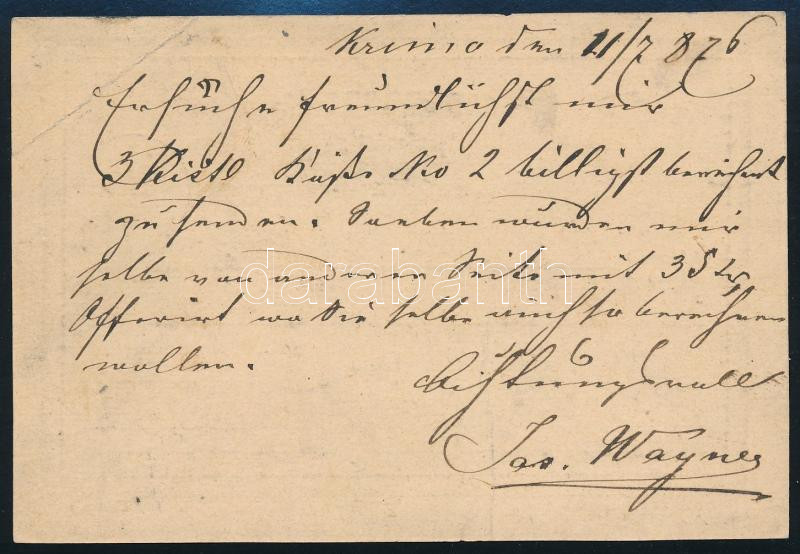 den 11/7 876
Ersuche freundlichst mir
3 Kistl Käse No 2 billigst berechnet
zu senden. Soeben wurden mir
selbe von anderer Seite mit 35 kr
Offerirt wo Sie selbe auch so berechnen
wollen.
Achtungsvoll
Jos. Wagner
darabanth